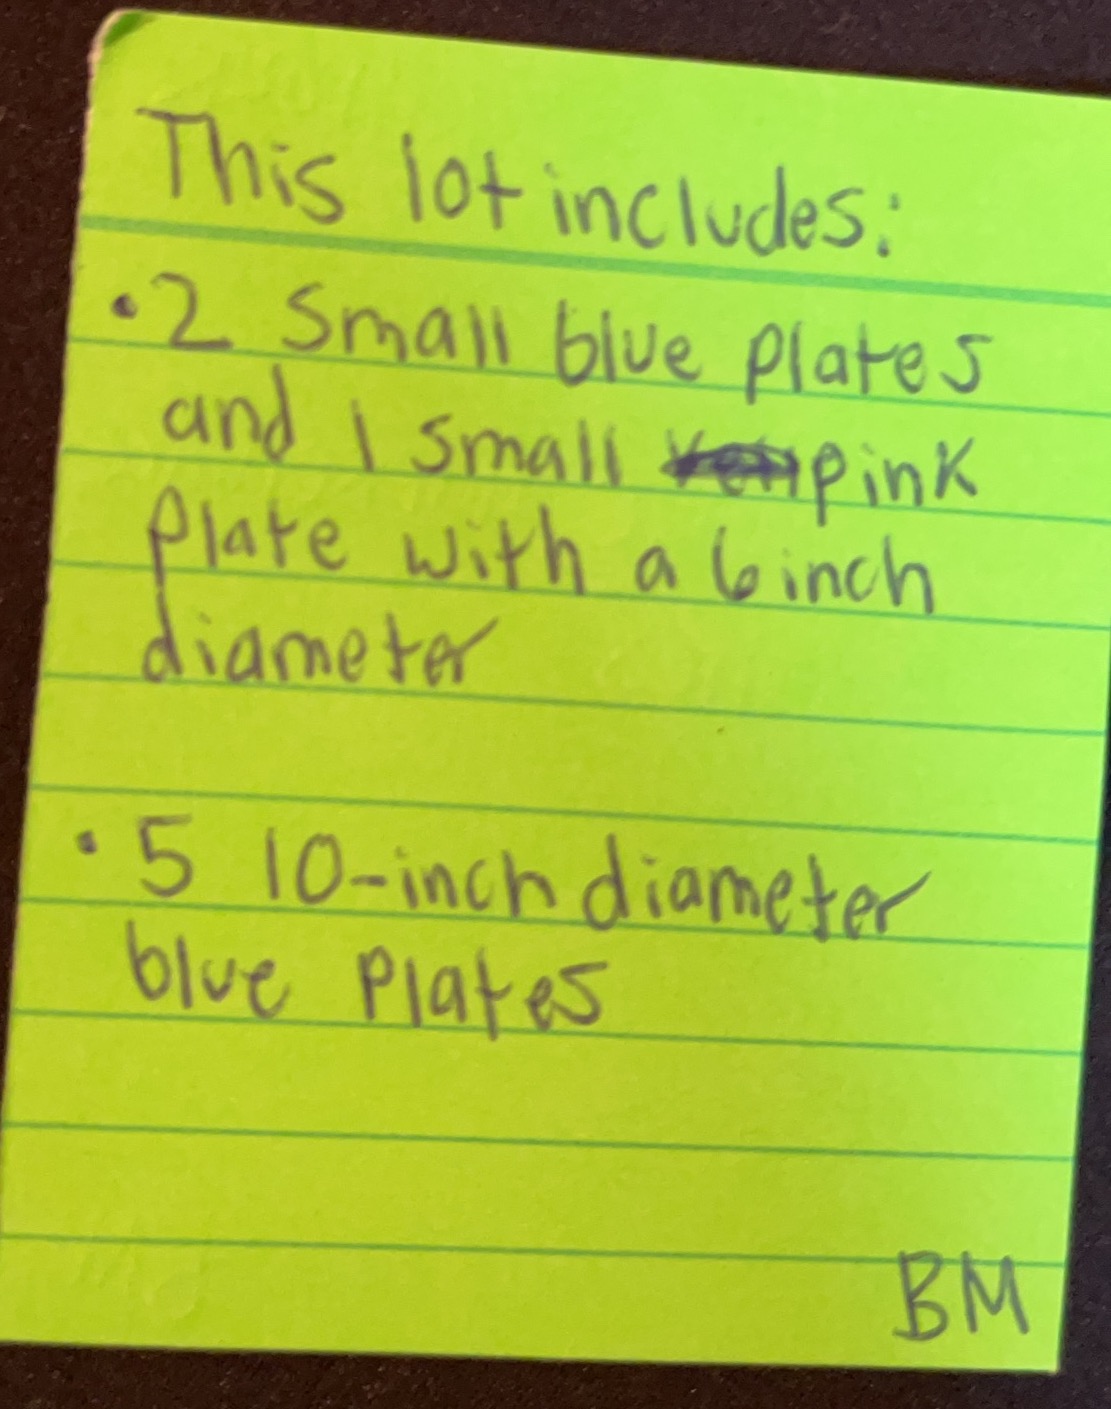 This lot includes:
• 2 small blue plates
and 1 small pink
plate with a 6 inch
diameter
• 5 10-inch diameter
blue plates
BM